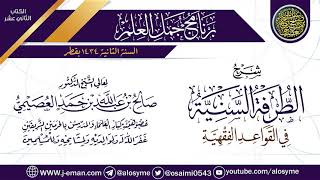 الكتاب
الثاني عشر
برنامج مهمات العلم
السنة الثانية ١٤٣٤ بقطر
شرح
الطرفة السنية
في القواعد الفقهية
لمعالي الشيخ الدكتور
صالح بن عبد الله بن حمد العصيمي
غفر الله له ولوالديه ولمشايخه وللمسلمين
www.j-eman.com
@alosyme
@osaimi0543
www.youtube.com/alosyme